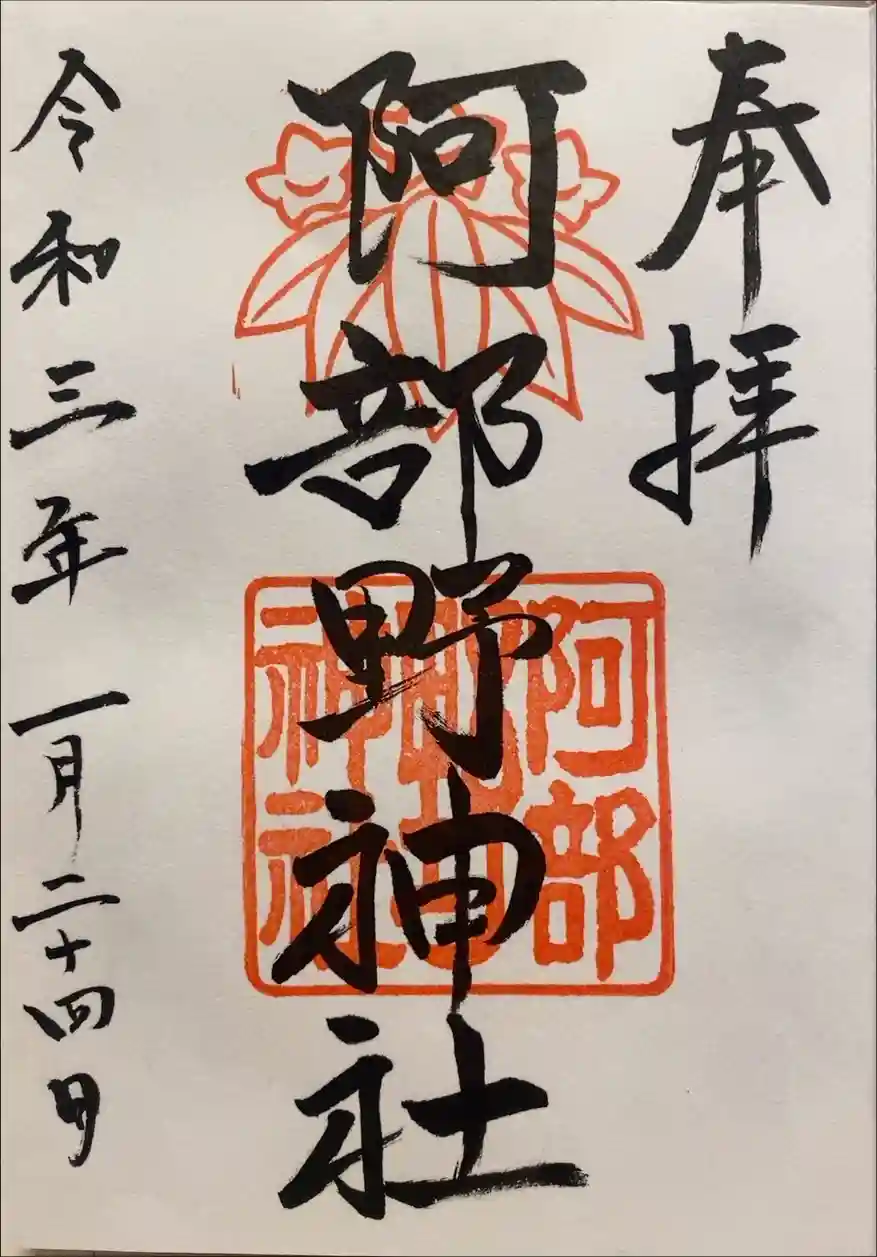 奉拝
阿部野神社
阿部野神社
令和三年一月二十四日